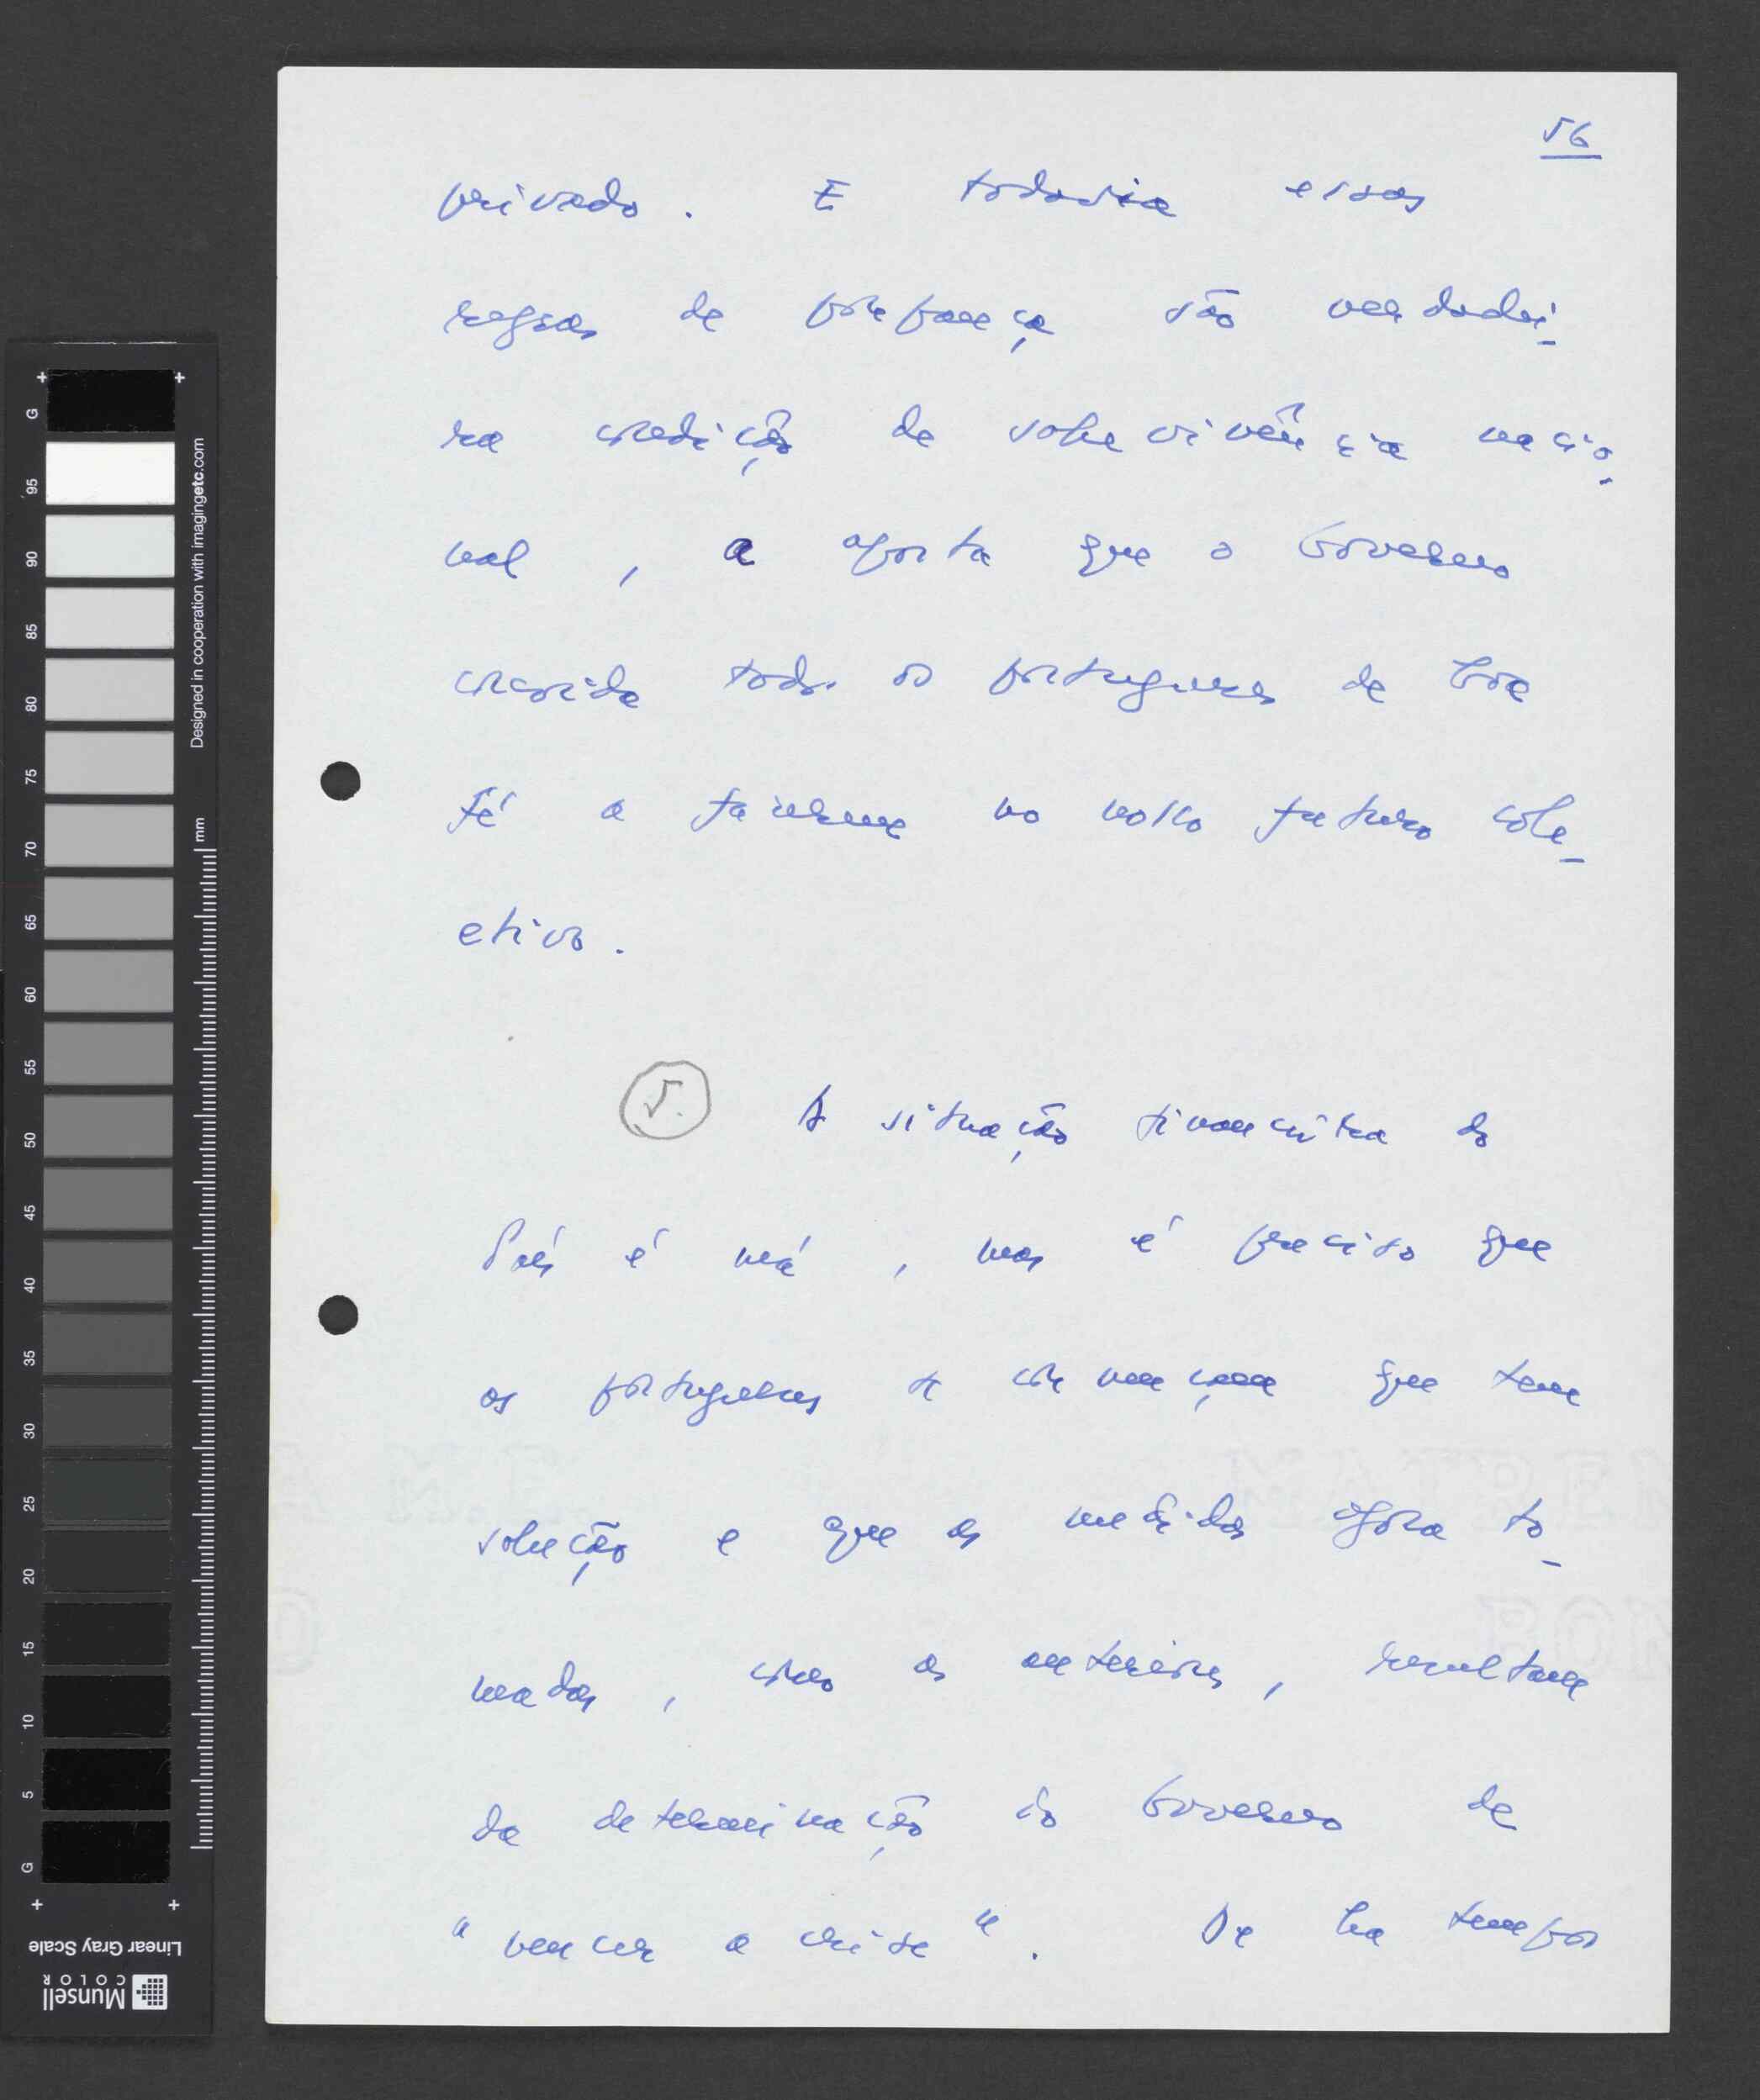 56
privado. E todavia essas
regras de poupança são verdadei-
ra condição de sobrevivência nacio-
nal, a aposta que o Governo
convida todos os portugueses de boa
fé a fazerem no nosso futuro cole-
ctivo.
5. A situação financeira do
País é má, mas é preciso que
os portugueses se convençam que tem
solução e que as medidas agora to-
madas, como as anteriores, resultam
da determinação do Governo de
"vencer a crise". De há tempos
G 95 90 85 80 75 70 65 60 55 50 45 40 35 30 25 20 15 10 5 G
Designed in cooperation with imagingetc.com
mm
Linear Gray Scale
Munsell
COLOR